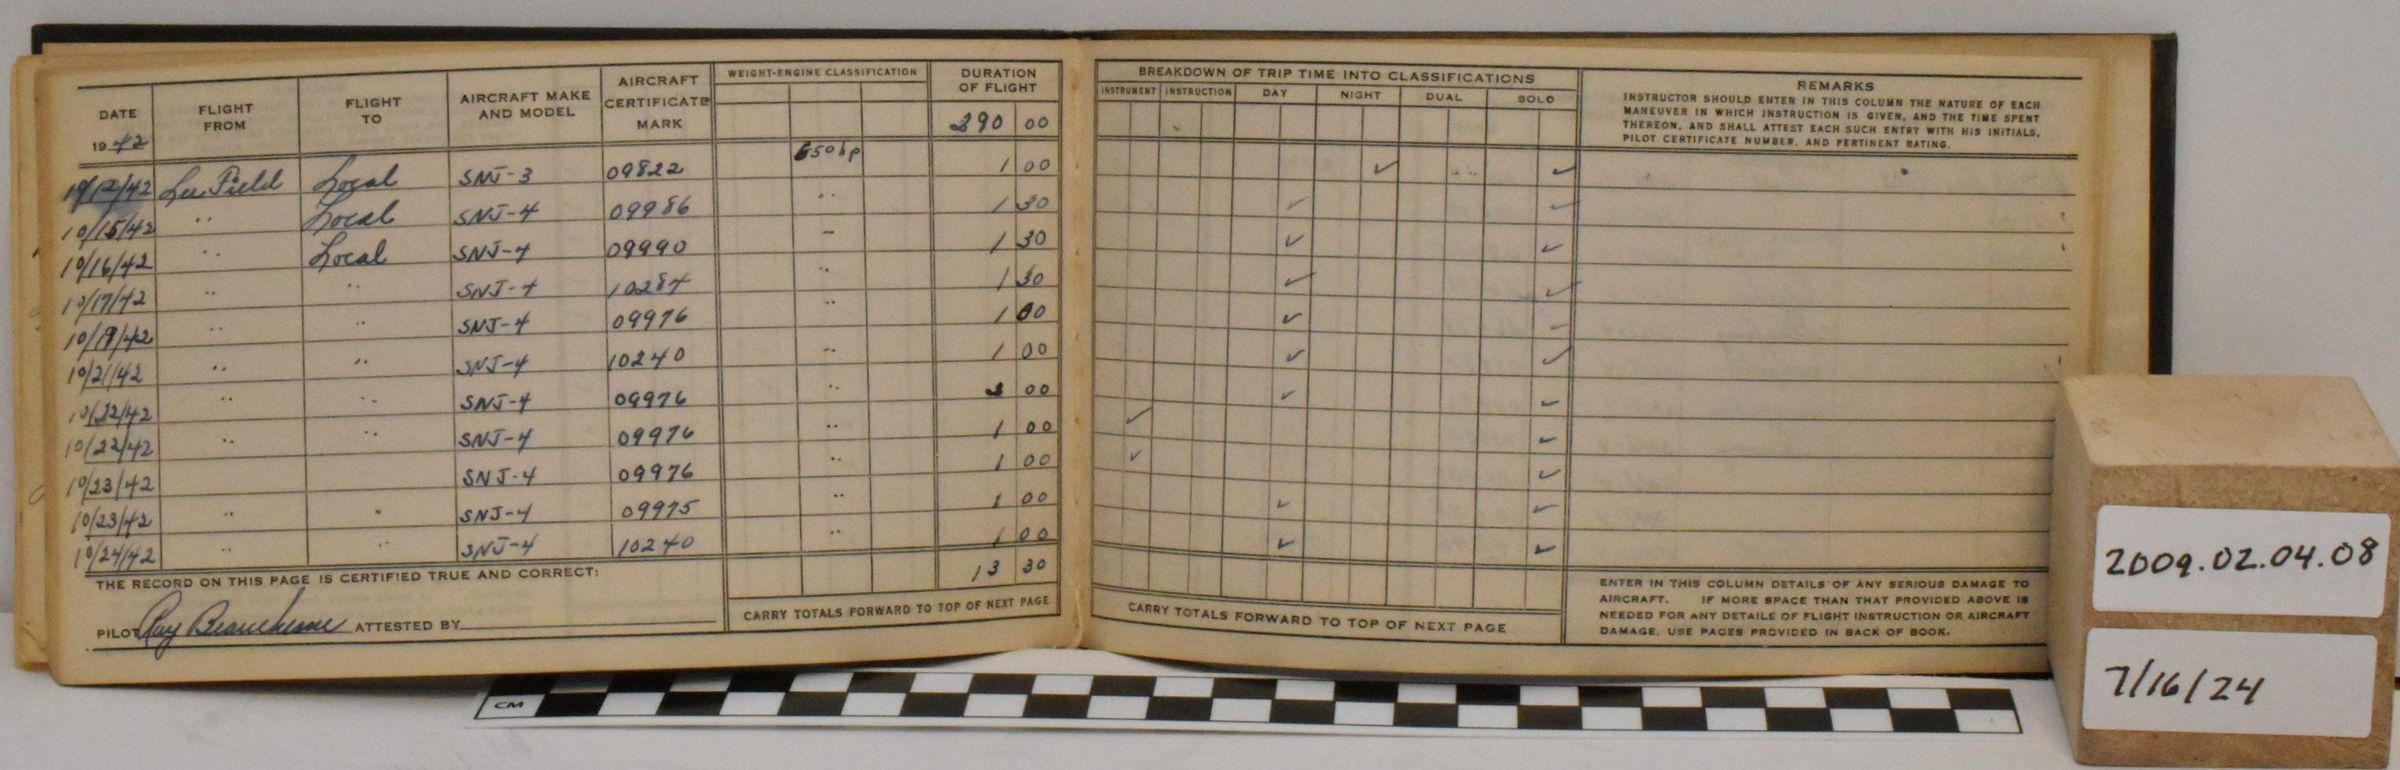 DATE 19 42 FLIGHT FROM FLIGHT TO AIRCRAFT MAKE AND MODEL AIRCRAFT CERTIFICATE MARK WEIGHT-ENGINE CLASSIFICATION DURATION OF FLIGHT
290 00
10/12/42 Lee Field Local SNJ-3 09822 650 hp 1 00
10/15/42 " Local SNJ-4 09986 " 1 30
10/16/42 " Local SNJ-4 09990 " 1 30
10/17/42 " " SNJ-4 10284 " 1 30
10/19/42 " " SNJ-4 09976 " 1 00
10/21/42 " " SNJ-4 10240 " 1 00
10/22/42 " " SNJ-4 09976 " 3 00
10/22/42 " " SNJ-4 09976 " 1 00
10/23/42 SNJ-4 09976 " 1 00
10/23/42 " " SNJ-4 09975 " 1 00
10/24/42 " " SNJ-4 10240 " 1 00
THE RECORD ON THIS PAGE IS CERTIFIED TRUE AND CORRECT: 13 30
PILOT Ray Beauchesne ATTESTED BY CARRY TOTALS FORWARD TO TOP OF NEXT PAGE
BREAKDOWN OF TRIP TIME INTO CLASSIFICATIONS
INSTRUMENT INSTRUCTION DAY NIGHT DUAL SOLO
REMARKS
INSTRUCTOR SHOULD ENTER IN THIS COLUMN THE NATURE OF EACH
MANEUVER IN WHICH INSTRUCTION IS GIVEN, AND THE TIME SPENT
THEREON, AND SHALL ATTEST EACH SUCH ENTRY WITH HIS INITIALS,
PILOT CERTIFICATE NUMBER, AND PERTINENT RATING.
✓ ✓
✓ ✓
✓ ✓
✓ ✓
✓ ✓
✓ ✓
✓ ✓
✓ ✓
✓ ✓
✓ ✓
✓ ✓
CARRY TOTALS FORWARD TO TOP OF NEXT PAGE
ENTER IN THIS COLUMN DETAILS OF ANY SERIOUS DAMAGE TO
AIRCRAFT. IF MORE SPACE THAN THAT PROVIDED ABOVE IS
NEEDED FOR ANY DETAILS OF FLIGHT INSTRUCTION OR AIRCRAFT
DAMAGE, USE PAGES PROVIDED IN BACK OF BOOK.
CM
2009.02.04.08
7/16/24